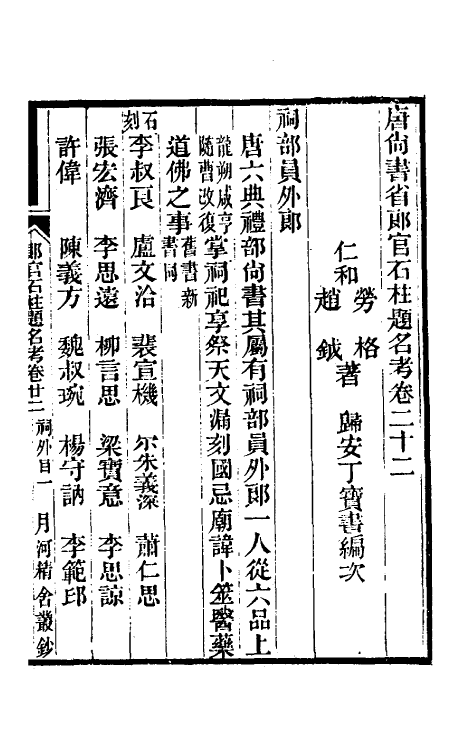 唐尚書省郎官石柱題名考卷二十二
仁和
勞格
趙鉞
著
歸安丁寶書編次
祠部員外郎
唐六典禮部尚書其屬有祠部員外郎一人從六品上
龍朔咸亨
隨曹改復
掌祠祀享祭天文漏刻國忌廟諱卜筮醫藥
道佛之事
舊書新
書同
石刻
李叔良 盧文洽 裴宣機 尒朱義深 蕭仁思
張宏濟 李思遠 柳言思 梁寶意 李思諒
許偉 陳義方 魏叔琬 楊守訥 李範邱
郎官石柱題名考卷廿二 祠外目一 月河精舍叢鈔